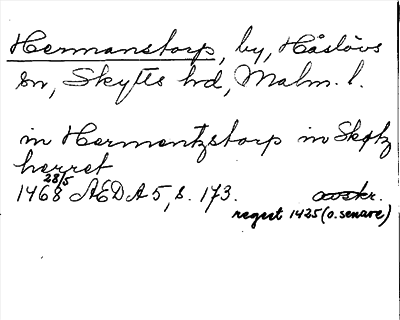 Hermanstorp, by, Håslövs
sn, Skytts hd, Malm. l.
in Hermentzstorp in Skøtz
herret
28/5
1468 ÆDA 5, s. 173. avskr.
regest 1425 (o. senare)